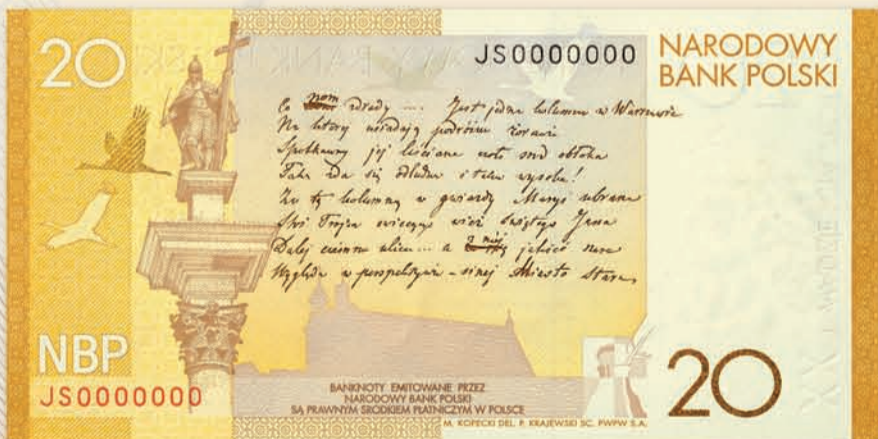 20
JS0000000
NARODOWY
BANK POLSKI
Co nam zdrady .... Jest jedna kolumna w Warszawie
Na której usiadają podróżne żorawie
Spotkawszy jej liściane śród obłoka
Taka zda się odludna i taka wysoka!
Za tą kolumną w gwiazdy ubrana
Stoi Trójca świecących wież świętego Jana
Dalej ciemna ulica... a z niej jakieś
Wygląda w perspektywie - sinej Miasto Stare,
NBP
JS0000000
BANKNOTY EMITOWANE PRZEZ
NARODOWY BANK POLSKI
SĄ PRAWNYM ŚRODKIEM PŁATNICZYM W POLSCE
M. KOPECKI DEL. P. KRAJEWSKI SC. PWPW S.A.
20